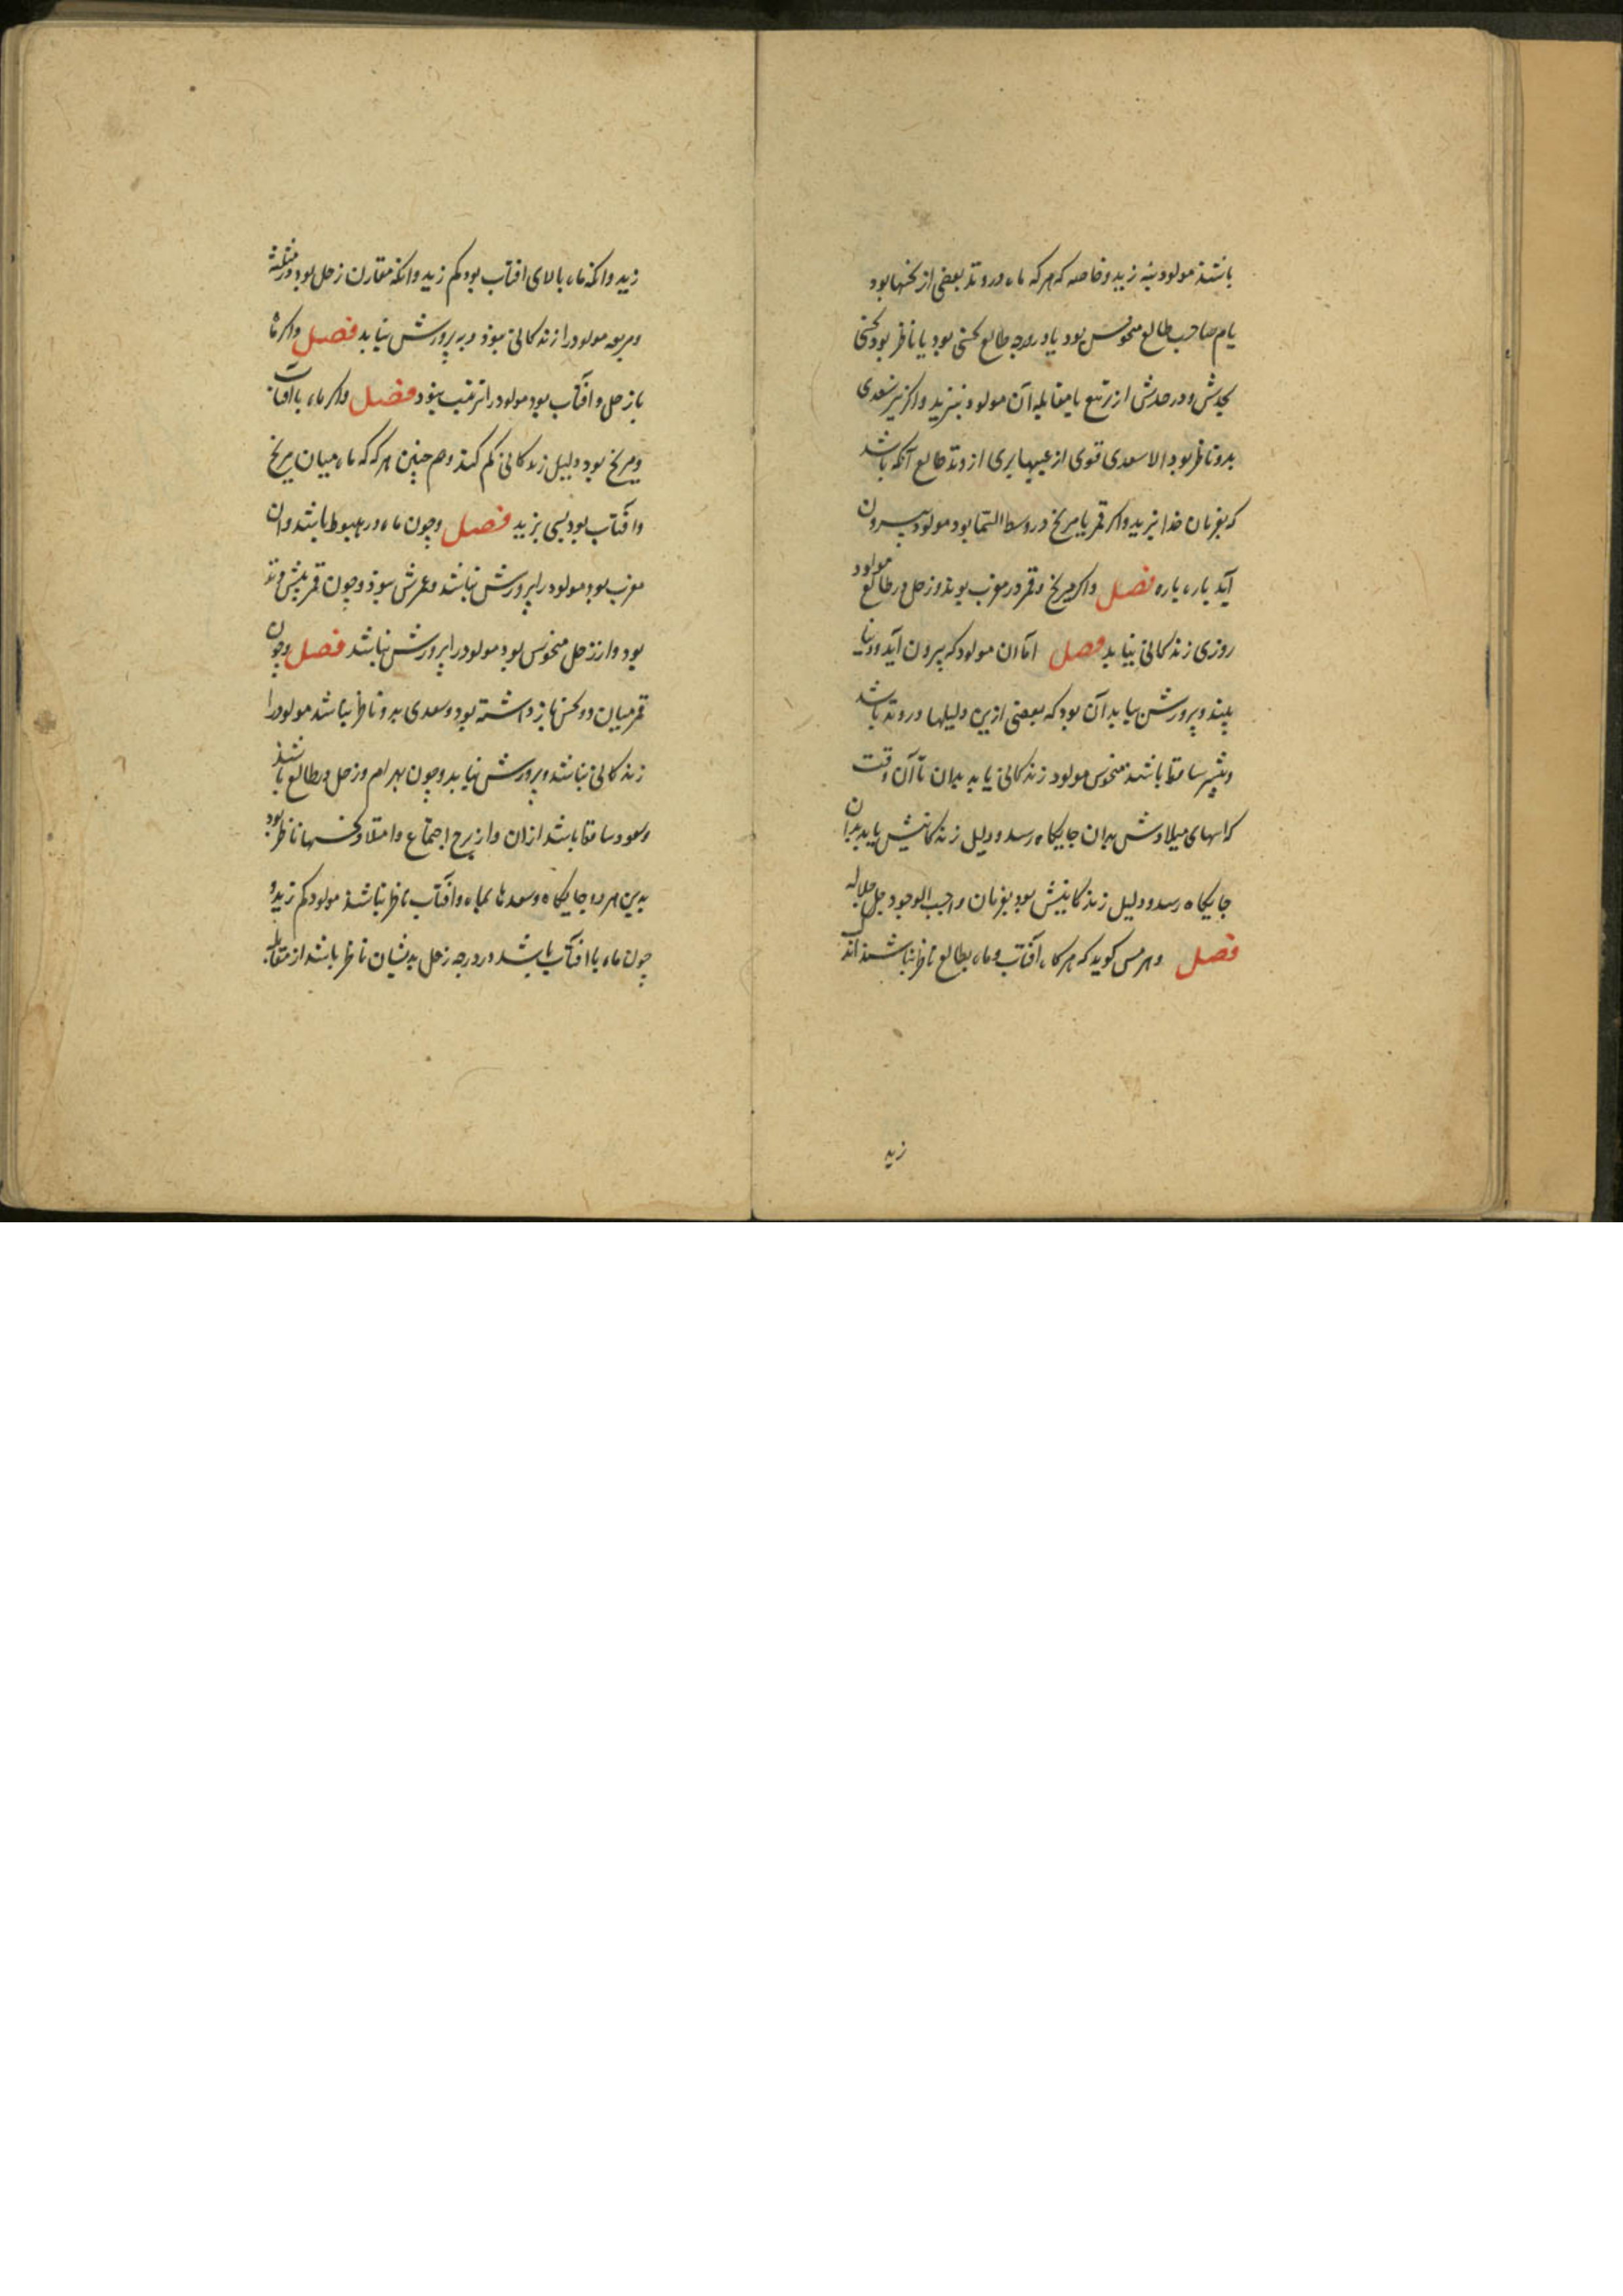 باشند مولود نه زید و خاصه که هرکه ماه در وتد بعضی از نحسها بود
یا هم صاحب طالع منحوس بود یا در درجه طالع نحسی بود یا ناظر بود نحسی
بحدش و در حدش از تربیع یا مقابله آن مولود نزید واکر نیز سعدی
بدو ناظر بود الا سعدی قوی از عیبها بری از وتد طالع آنکه باشد
که بفرمان خدا بزید واکر قمر یا مریخ در وسط السما بود مولود بیرون
آید پاره پاره فصل واکر مریخ و قمر در مغرب بوند و زحل در طالع مولود
روزی زندکانی نیابد فصل اما آن مولود که بیرون آید و دنیا
بیند و پرورش بیابد آن بود که بعضی ازین دلیلها در وتد باشد
و نیز ساقط باشند منحوس مولود زندکانی یابد بدان تا آن وقت
که اسهای میلادش بدان جایکاه رسد و دلیل زندکانیش یابد بدان
جایکاه رسد و دلیل زندکانیش بود بفرمان واجب الوجود جل جلاله
فصل و هرمس کوید که هرکاه آفتاب و ماه بطالع ناظر نباشند اند
زید
زید وانکه ماه بالای افتاب بود کم زید وانکه مقارن زحل بود در مثلثه
و مربعه مولود را زندکانی نبود و به پرورش نیابد فصل واکر ماه
با زحل و افتاب بود مولود را تربیت نبود فصل واکر ماه با آفتاب
و مریخ بود دلیل زندکانی کم کند و هم چنین هرکه که ماه میان مریخ
و افتاب بود بسی نزید فصل و چون ماه در هبوط باشد و ان
مغرب بود مولود را پرورش نباشد و عمرش نبود و چون قمر بیش وتد
بود و از زحل منحوس بود مولود را پرورش نباشد فصل و چون
قمر میان دو نحس باز داشته بود و سعدی بدو ناظر نباشد مولود را
زندکانی نباشد و پرورش نیابد و چون بهرام و زحل در طالع باشند
و سعود ساقط باشد ازان و از برج اجتماع و امتلا و نحسها ناظر بود
بدین هر دو جایکاه و سعدها بماه و افتاب ناظر نباشند مولود کم زید و
چون ماه با افتاب باشد در درجه زحل بدیشان ناظر باشد از مقابله